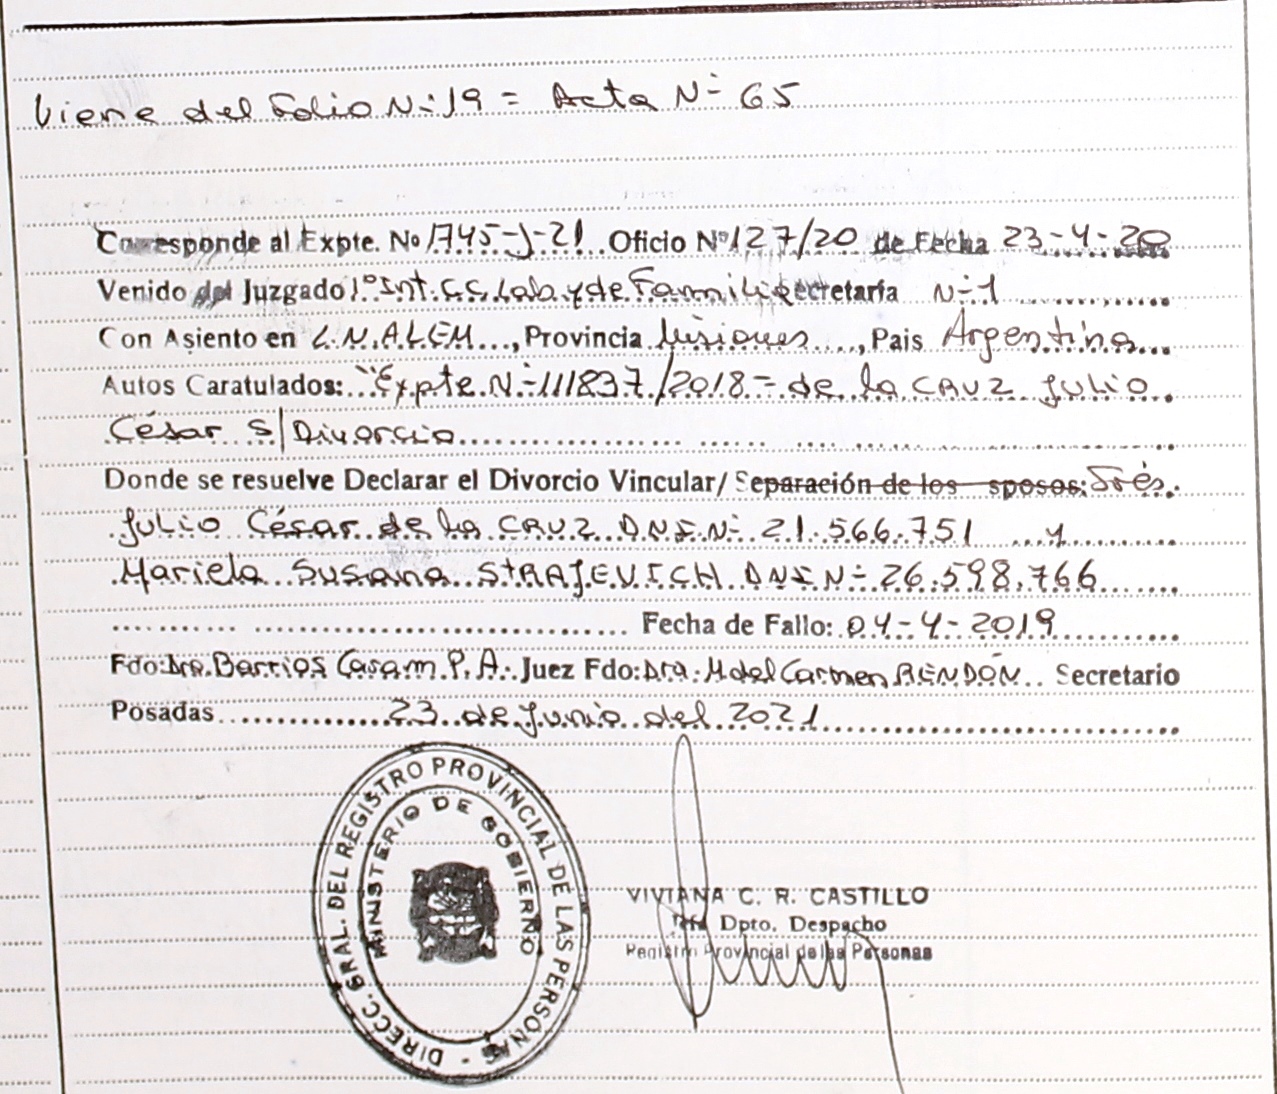 Viene del Folio N-19 = Acta N- 65
Corresponde al Expte. Nº 1745-J-21 Oficio Nº 127/20 de Fecha 23-4-20
Venido del Juzgado 1º Inst. C.C. Lab. y de Familia Secretaría N-1
Con Asiento en L.N.ALEM, Provincia Misiones, Pais Argentina
Autos Caratulados: "Expte. N-111837/2018- de la CRUZ Julio
César S/Divorcio
Donde se resuelve Declarar el Divorcio Vincular/ Separación de los sposos:
Julio César de la CRUZ D.N.I.N- 21.566.751 y
Mariela Susana STRAJEVICH DNI N- 26.598.766
Fecha de Fallo: 04-4-2019
Fdo: Dra. Barrios Caram P.A. Juez Fdo: Dra. M del Carmen RENDÓN Secretario
Posadas 23 de Junio del 2021
DIRECC. GRAL. DEL REGISTRO PROVINCIAL DE LAS PERSONAS
MINISTERIO DE GOBIERNO
VIVIANA C. R. CASTILLO
Dpto. Despacho
Registro Provincial de las Personas